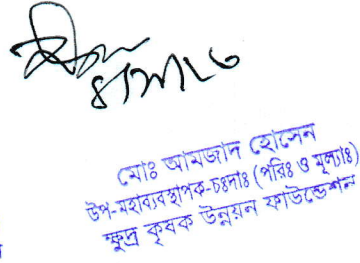 মোঃ আমজাদ হোসেন
উপ-মহাব্যবস্থাপক-চঃদাঃ (পরিঃ ও মূল্যাঃ)
ক্ষুদ্র কৃষক উন্নয়ন ফাউন্ডেশন